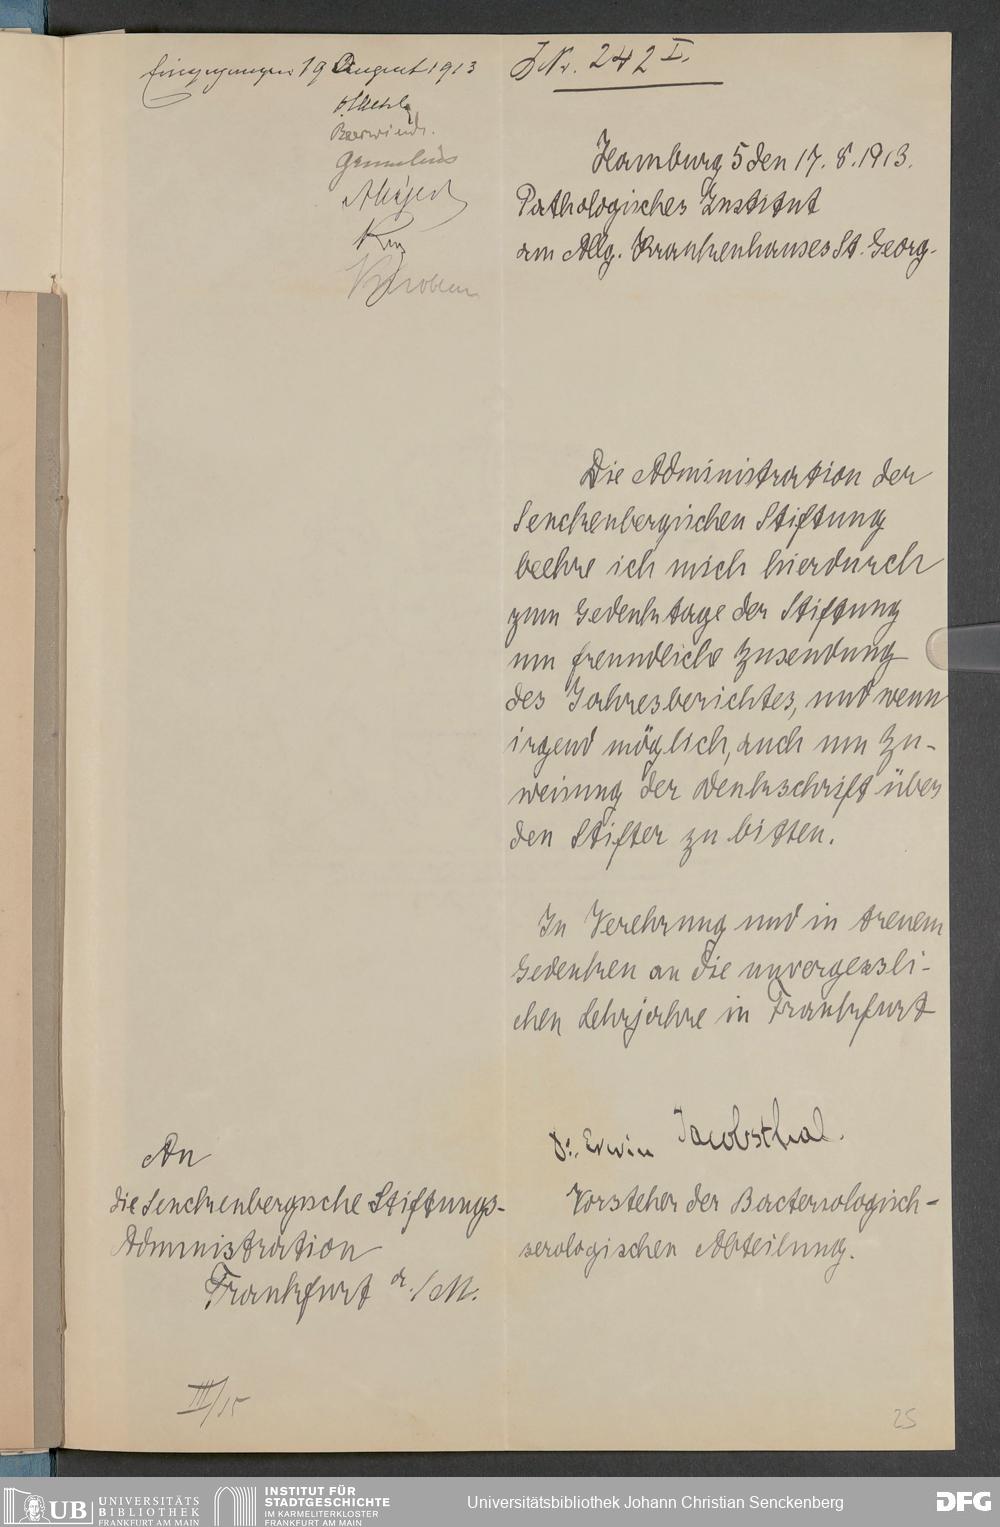 Eingegangen 19 August 1913
JNr. 242 I.
Hamburg 5 den 17. 8. 1913.
Pathologisches Institut
am Allg. Krankenhauses St. Georg.
Die Administration der
Senckenbergischen Stiftung
beehre ich mich hierdurch
zum Gedenktage der Stiftung
um freundliche Zusendung
des Jahresberichtes, und wenn
irgend möglich, auch um Zu-
weisung der Denkschrift über
den Stifter zu bitten.
In Verehrung und in treuem
Gedenken an die unvergessli-
chen Lehrjahre in Frankfurt
Dr. Erwin Jacobsthal.
Vorsteher der Bacteriologisch-
serologischen Abteilung.
An
die Senckenbergische Stiftungs-
Administration
Frankfurt a./M.
III/15
25
UB UNIVERSITÄTS
BIBLIOTHEK
FRANKFURT AM MAIN
INSTITUT FÜR
STADTGESCHICHTE
IM KARMELITERKLOSTER
FRANKFURT AM MAIN
Universitätsbibliothek Johann Christian Senckenberg
DFG